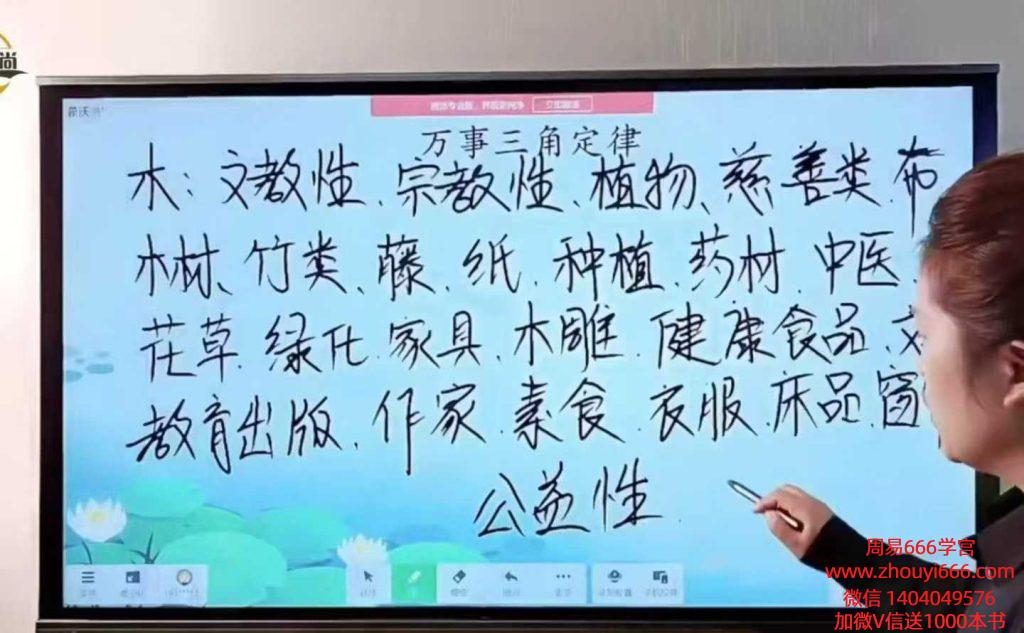 尚
万事三角定律
木：文教性、宗教性、植物、慈善类、布
木材、竹类、藤、纸、种植、药材、中医、
花草、绿化、家具、木雕、健康食品、文
教育出版、作家、素食、衣服、床品、窗
公益性
周易666学宫
www.zhouyi666.com
微信 1404049576
加微V信送1000本书